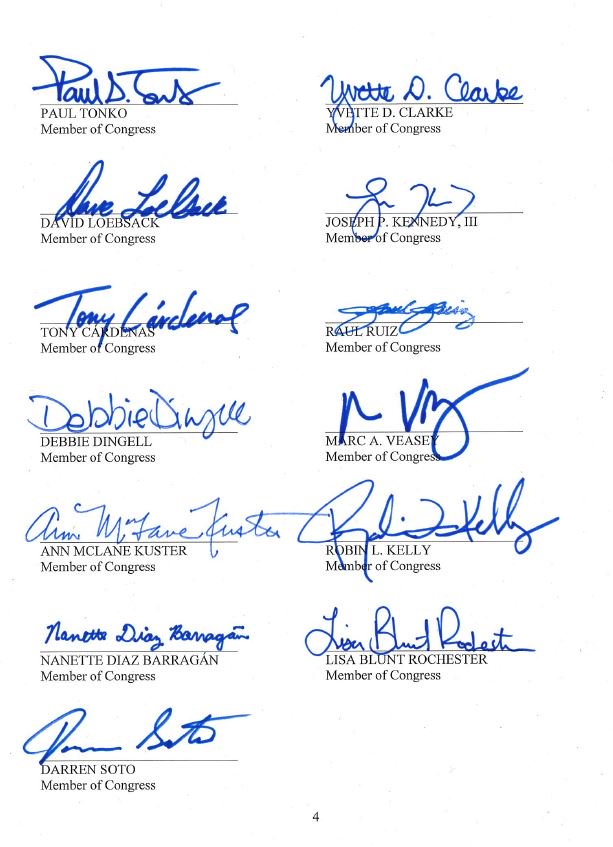 Paul D. Tonko
PAUL TONKO
Member of Congress
Yvette D. Clarke
YVETTE D. CLARKE
Member of Congress
Dave Loebsack
DAVID LOEBSACK
Member of Congress
JOSEPH P. KENNEDY, III
Member of Congress
Tony Cárdenas
TONY CÁRDENAS
Member of Congress
RAUL RUIZ
Member of Congress
Debbie Dingell
DEBBIE DINGELL
Member of Congress
MARC A. VEASEY
Member of Congress
Ann McLane Kuster
ANN MCLANE KUSTER
Member of Congress
Robin L Kelly
ROBIN L. KELLY
Member of Congress
Nanette Diaz Barragán
NANETTE DIAZ BARRAGÁN
Member of Congress
Lisa Blunt Rochester
LISA BLUNT ROCHESTER
Member of Congress
Darren Soto
DARREN SOTO
Member of Congress
4